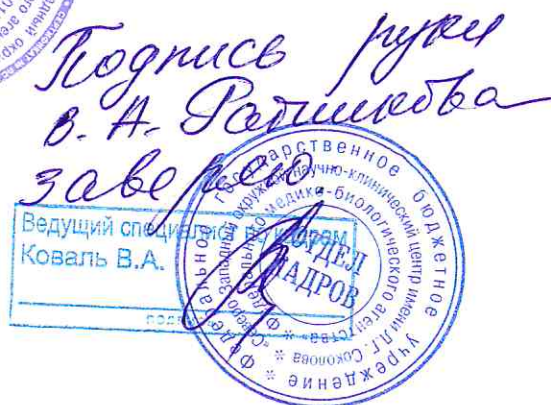 Подпись руки
В. А. Ратникова
заверяю
Ведущий специалист по кадрам
Коваль В.А.
ОТДЕЛ
КАДРОВ
Федеральное государственное бюджетное учреждение
«Северо-Западный окружной научно-клинический центр имени Л.Г. Соколова
Федерального медико-биологического агентства»